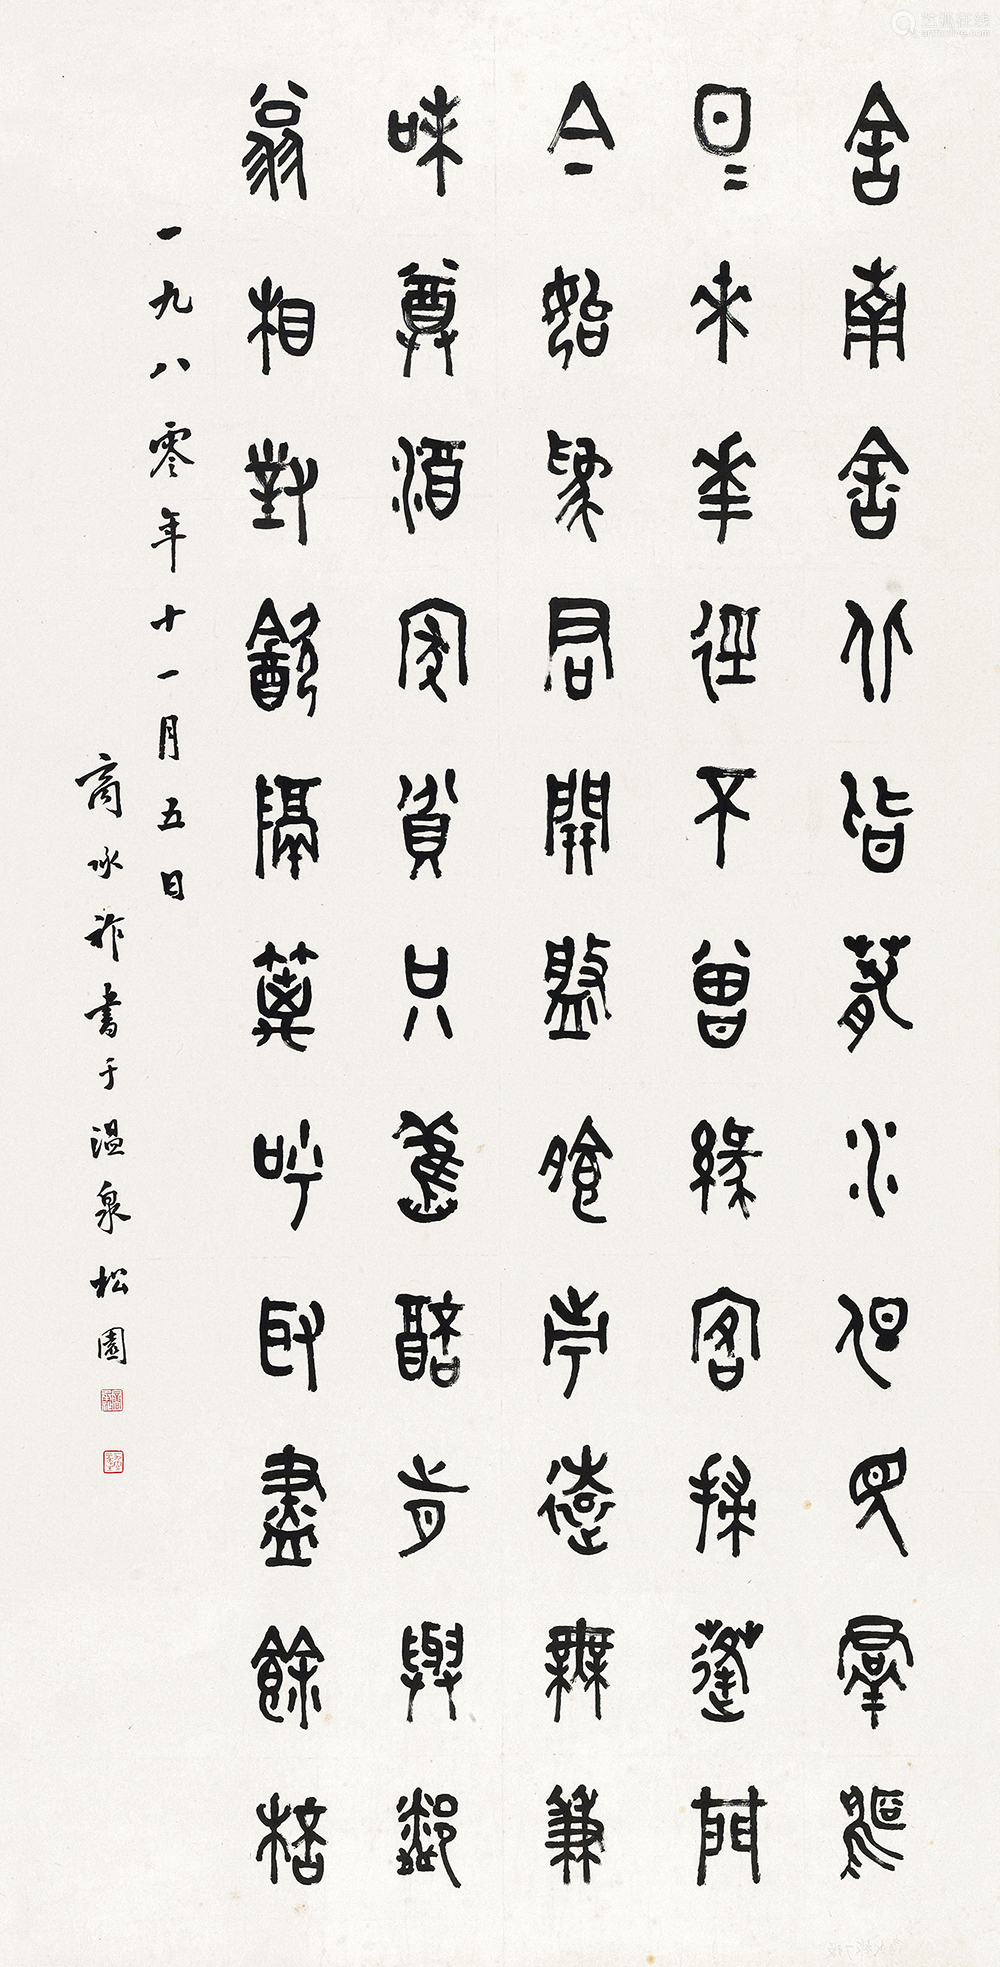 舍南舍北皆春水但見羣鷗
日=來花徑不曾緣客掃蓬門
今始為君開盤飧市遠無兼
味尊酒家貧只舊醅肯與鄰
翁相對飲隔籬呼取盡餘桮
一九八零年十一月五日
商承祚書于温泉松園
艺狐在线
artfoxlive.com